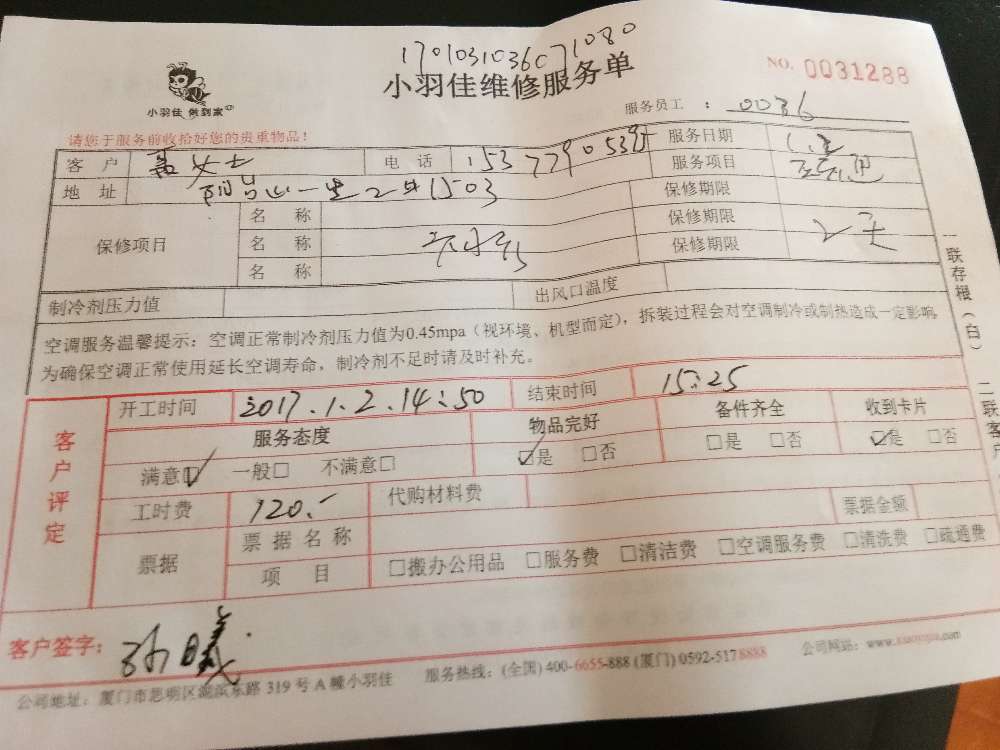 1701031036071080
小羽佳 做到家
小羽佳维修服务单
NO. 0031288
服务员工 ： 0036
请您于服务前收拾好您的贵重物品！
客 户 女士 电 话 服务日期 1.2
地 址 1503 服务项目
保修项目 名 称 保修期限
名 称 保修期限 2天
名 称 保修期限
制冷剂压力值 出风口温度
空调服务温馨提示：空调正常制冷剂压力值为0.45mpa（视环境、机型而定），拆装过程会对空调制冷或制热造成一定影响，
为确保空调正常使用延长空调寿命，制冷剂不足时请及时补充。
一联存根（白）
二联客户
客户评定
开工时间 2017.1.2.14:50 结束时间 15:25
服务态度 物品完好 备件齐全 收到卡片
满意☑ 一般□ 不满意□ ☑是 □否 □是 □否 ☑是 □否
工时费 120.- 代购材料费
票据 票据名称 票据金额
项 目 □搬办公用品 □服务费 □清洁费 □空调服务费 □清洗费 □疏通费
客户签字：
公司地址：厦门市思明区湖滨东路 319 号 A 幢小羽佳 服务热线：(全国) 400-6655-888 (厦门) 0592-5178888 公司网路：www.xiaoyujia.com